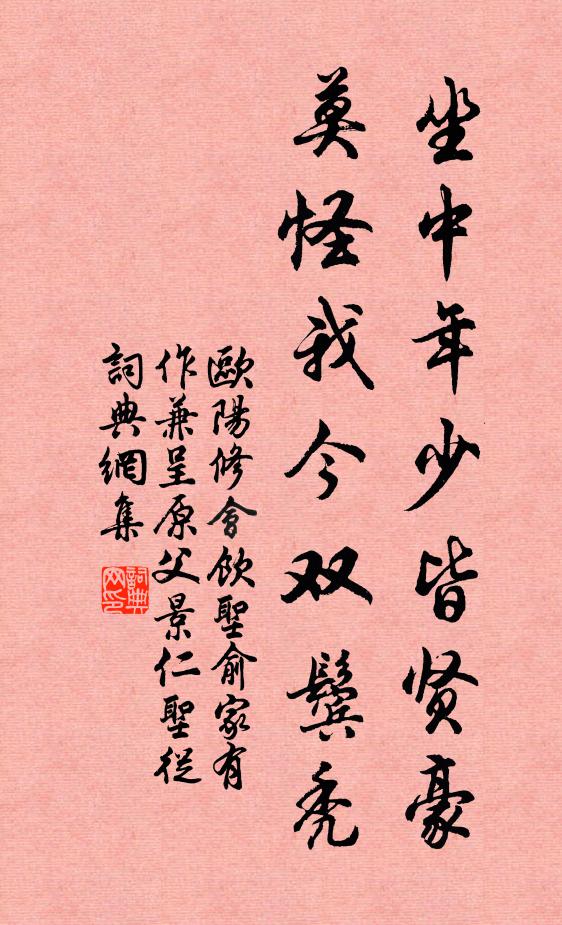 坐中年少皆贤豪
莫怪我今双鬓秃
歐陽修會飲聖俞家有
作兼呈原父景仁聖從
詞典網集
詞典网印